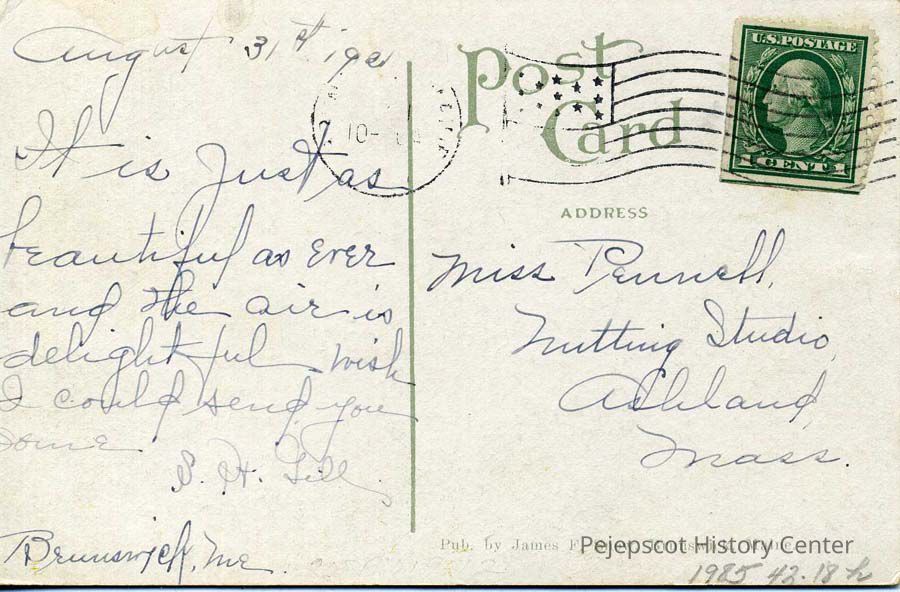 August 31st 1921
It is just as
beautiful as ever
and the air is
delightful wish
I could send you
some
S. H. Gill
Brunswick, Me.
Post
Card
U.S. POSTAGE
1 CENT 1
10-
ADDRESS
Miss Pennell,
Nutting Studio,
Ashland,
Mass.
Pub. by James F.
Pejepscot History Center
1985 42.18 h